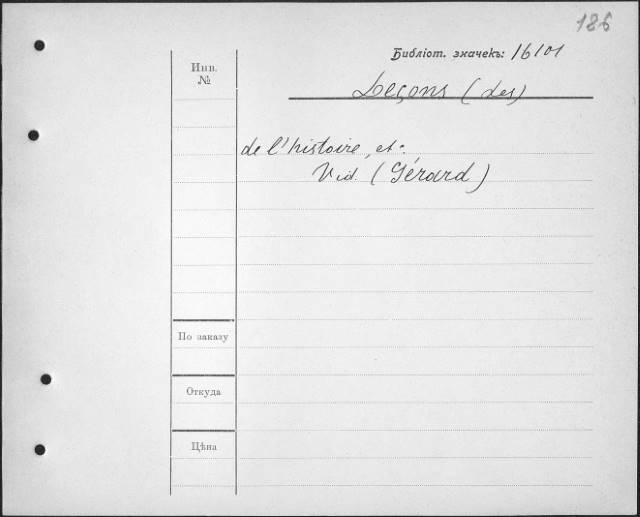 186
Библіот. значекъ: 16101
Инв.
№
Leçons (Les)
de l'histoire, etc.
Vid. (Gérard)
По заказу
Откуда
Цѣна